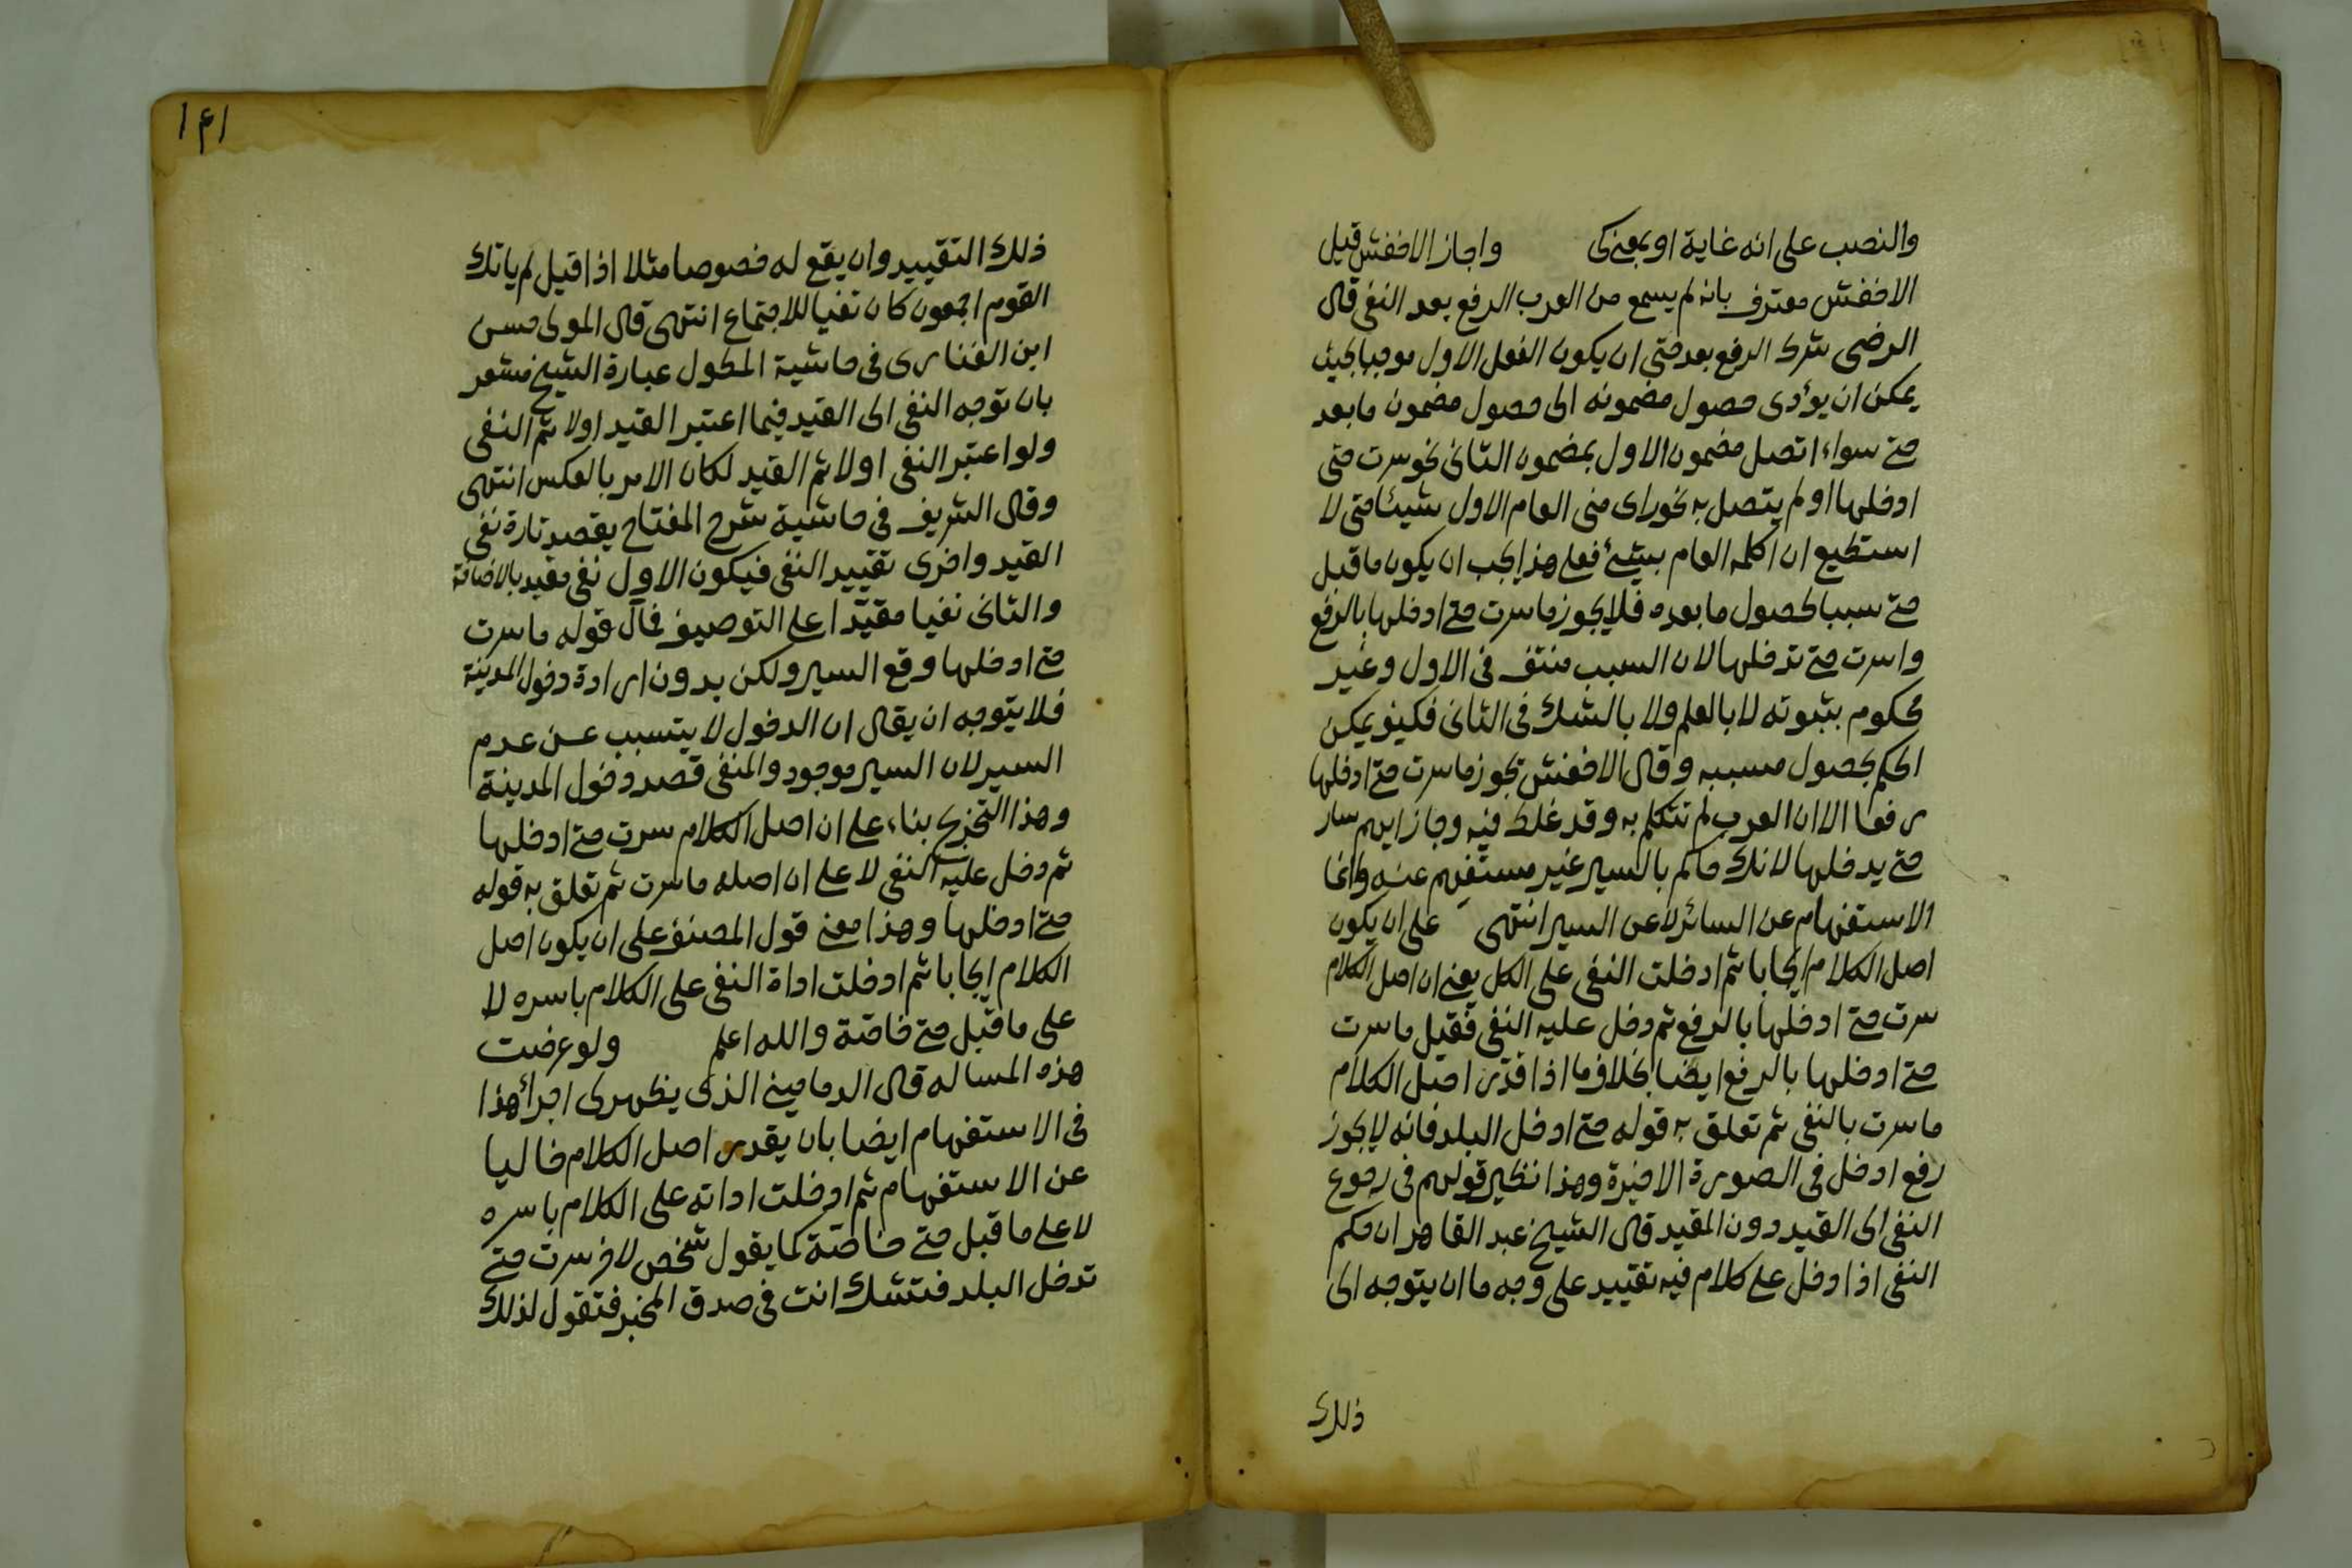 والنصب على انه غاية او بمعنى كى واجاز الاخفش قيل
الاخفش معترف بانه لم يسمع من العرب الرفع بعد النفى قال
الرضى شرط الرفع بعد حتى ان يكون الفعل الاول موجبا بحيث
يمكن ان يؤدى حصول مضمونه الى حصول مضمون ما بعد
حتى سواء اتصل مضمون الاول بمضمون الثانى نحو سرت حتى
ادخلها او لم يتصل به نحو راى منى العام الاول شيئا حتى لا
استطيع ان اكلمه العام بشئ فعلى هذا يجب ان يكون ما قبل
حتى سببا لحصول ما بعده فلا يجوز ما سرت حتى ادخلها بالرفع
واسرت حتى تدخلها لان السبب منتف فى الاول وغير
محكوم بثبوته لا بالعلم ولا بالشك فى الثانى فكيف يمكن
الحكم بحصول مسببه وقال الاخفش تجوز ما سرت حتى ادخلها
رفعا الا ان العرب لم تتكلم به وقد غلط فيه وجاز ايهم سار
حتى يدخلها لانك حاكم بالسير غير مستفهم عنه وانما
الاستفهام عن السائر لا عن السير انتهى على ان يكون
اصل الكلام ايجابا ثم ادخلت النفى على الكل يعنى ان اصل الكلام
سرت حتى ادخلها بالرفع ثم دخل عليه النفى فقيل ما سرت
حتى ادخلها بالرفع ايضا بخلاف ما اذا قدر اصل الكلام
ما سرت بالنفى ثم تعلق به قوله حتى ادخل البلد فانه لا يجوز
رفع ادخل فى الصورة الاخيرة وهذا نظير قولهم فى رجوع
النفى الى القيد دون المقيد قال الشيخ عبد القاهر ان حكم
النفى اذا دخل على كلام فيه تقييد على وجه ما ان يتوجه الى
ذلك
١٤١
ذلك التقييد وان يقع له خصوصا مثلا اذا قيل لم ياتك
القوم اجمعون كان نفيا للاجتماع انتهى قال المولى حسن
ابن الفنارى فى حاشية المطول عبارة الشيخ مشعر
بان توجه النفى الى القيد فيما اعتبر القيد اولا ثم النفى
ولو اعتبر النفى اولا ثم القيد لكان الامر بالعكس انتهى
وقال الشريف فى حاشية شرح المفتاح يقصد تارة نفى
القيد واخرى تقييد النفى فيكون الاول نفى مقيد بالاضافة
والثانى نفيا مقيدا على التوصيف فمآل قوله ما سرت
حتى ادخلها وقع السير ولكن بدون ارادة دخول المدينة
فلا يتوجه ان يقال ان الدخول لا يتسبب عن عدم
السير لان السير موجود والمنفى قصد دخول المدينة
وهذا التخريج بناء على ان اصل الكلام سرت حتى ادخلها
ثم دخل عليه النفى لا على ان اصله ما سرت ثم تعلق به قوله
حتى ادخلها وهذا معنى قول المصنف على ان يكون اصل
الكلام ايجابا ثم ادخلت اداة النفى على الكلام باسره لا
على ما قبل حتى خاصة والله اعلم ولو عرضت
هذه المسالة قال الدمامينى الذى يظهر لى اجراء هذا
فى الاستفهام ايضا بان يقدر اصل الكلام خاليا
عن الاستفهام ثم ادخلت اداته على الكلام باسره
لا على ما قبل حتى خاصة كما يقول شخص لاخر سرت حتى
تدخل البلد فتشك انت فى صدق المخبر فتقول لذلك